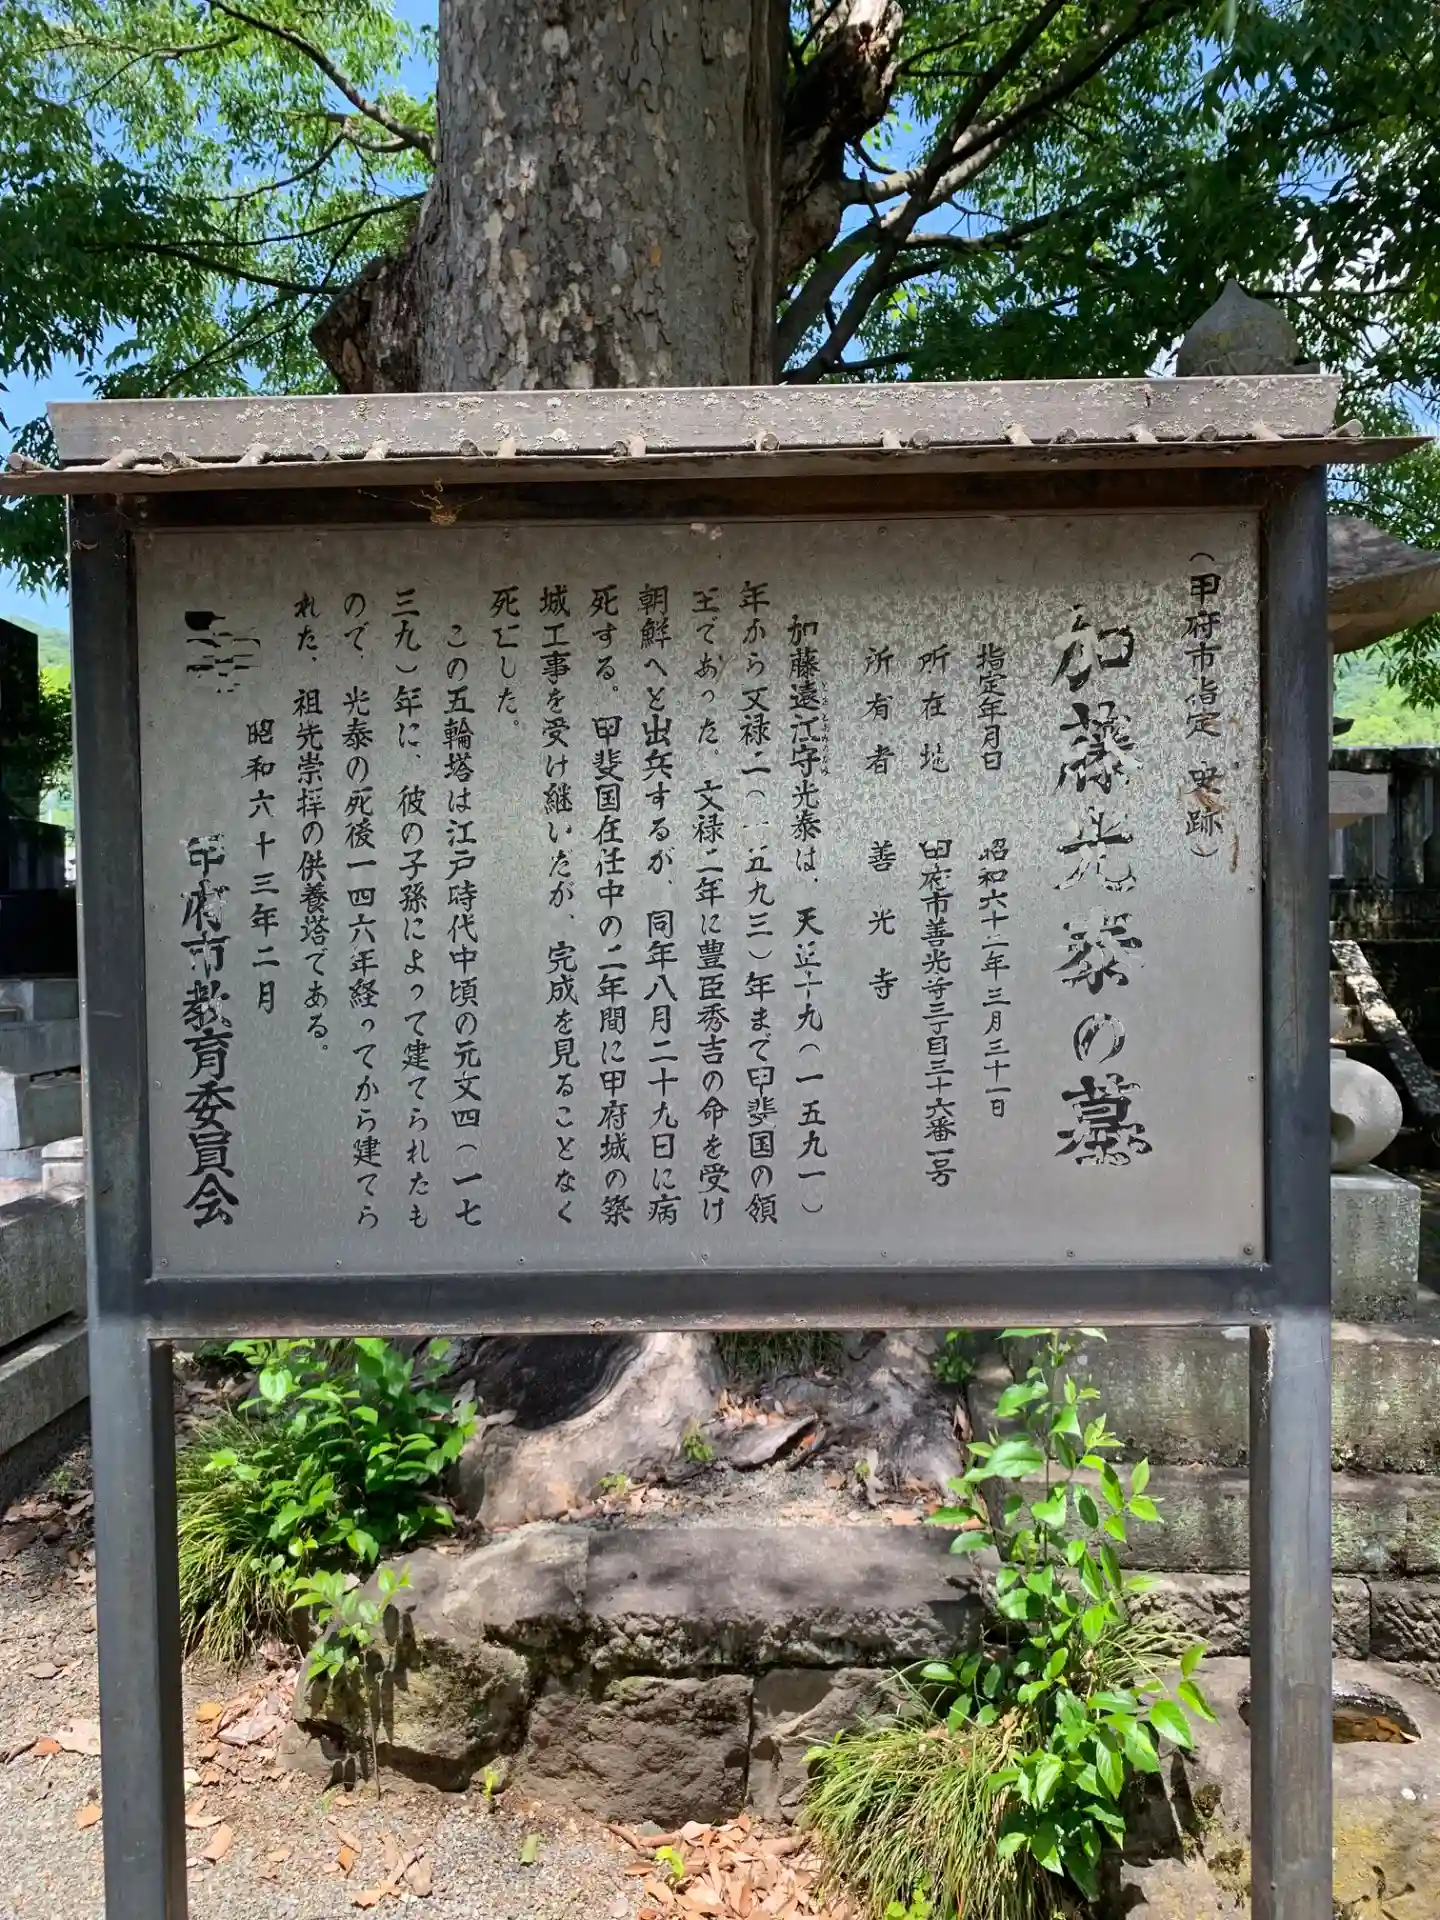 （甲府市指定 史跡）
加藤光泰の墓
指定年月日 昭和六十二年三月三十一日
所在地 甲府市善光寺三丁目三十六番一号
所有者 善光寺
加藤遠江守光泰は、天正十九（一五九一）
年から文禄二（一五九三）年まで甲斐国の領
主であった。文禄二年に豊臣秀吉の命を受け
朝鮮へと出兵するが、同年八月二十九日に病
死する。甲斐国在任中の二年間に甲府城の築
城工事を受け継いだが、完成を見ることなく
死亡した。
この五輪塔は江戸時代中頃の元文四（一七
三九）年に、彼の子孫によって建てられたも
ので、光泰の死後一四六年経ってから建てら
れた、祖先崇拝の供養塔である。
昭和六十三年二月
甲府市教育委員会